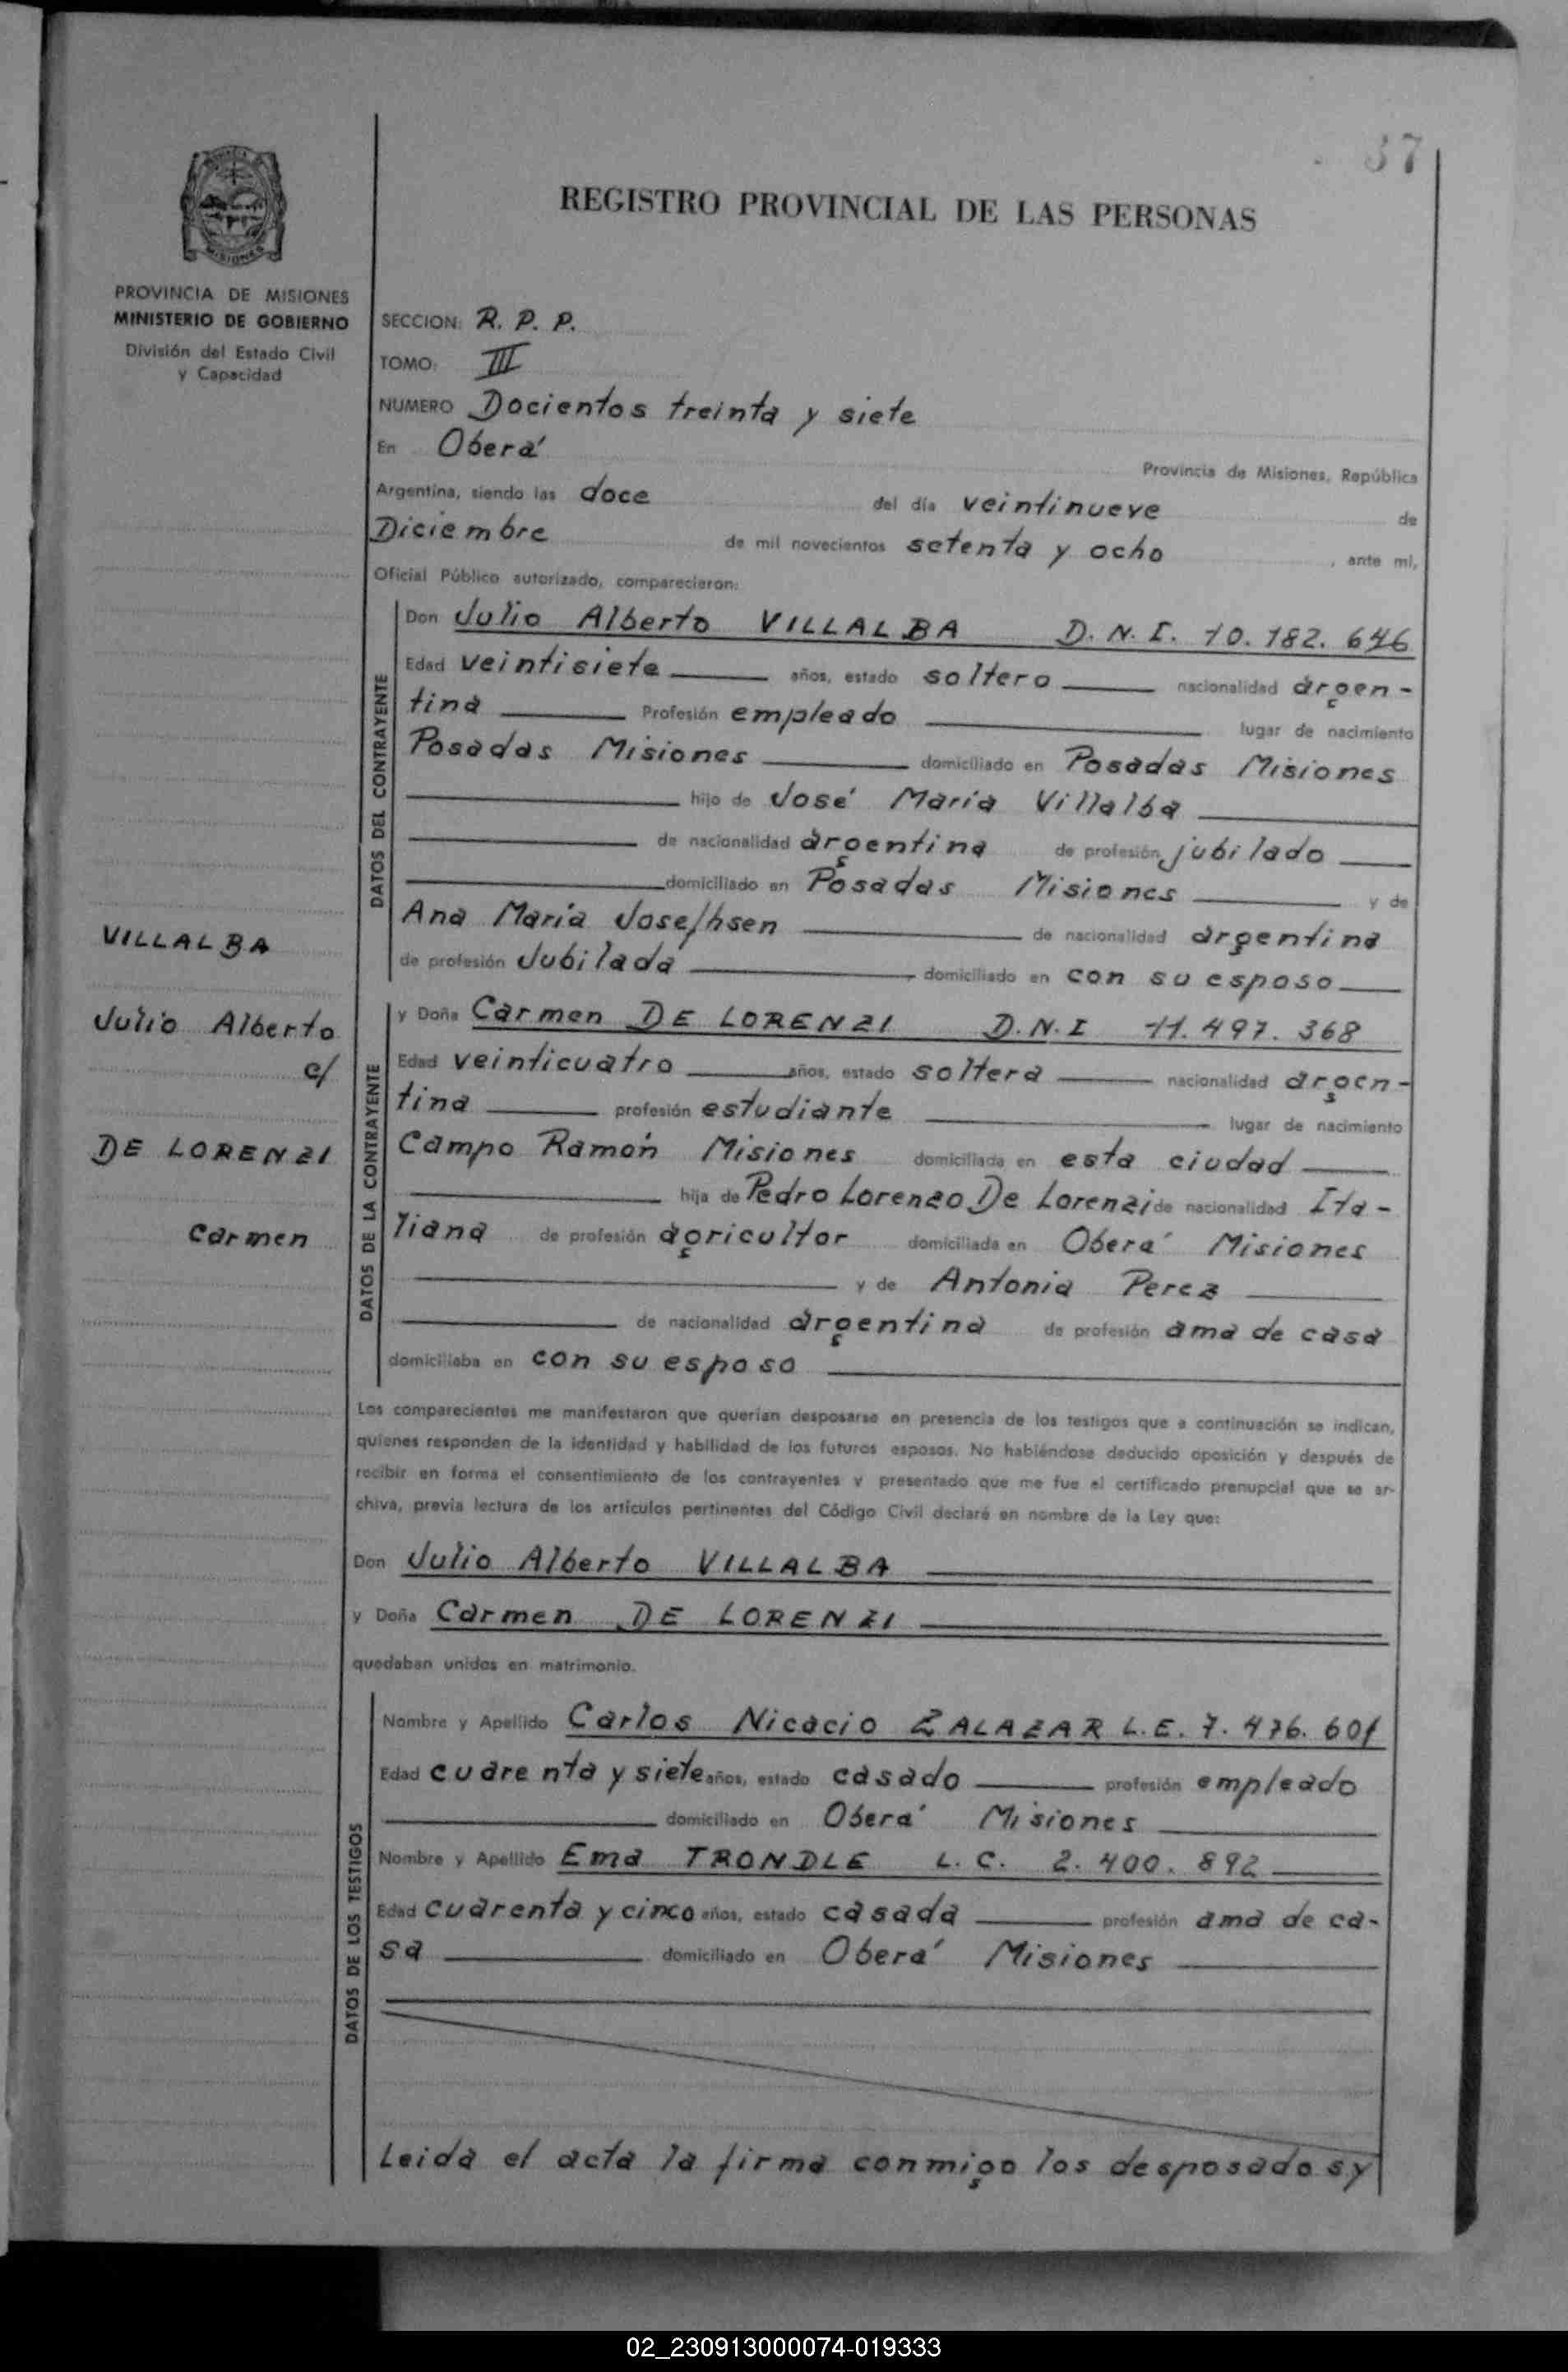 37
REGISTRO PROVINCIAL DE LAS PERSONAS
MISIONES
PROVINCIA DE MISIONES
MINISTERIO DE GOBIERNO
División del Estado Civil
y Capacidad
SECCION: R. P. P.
TOMO: III
NUMERO Docientos treinta y siete
En Oberá Provincia de Misiones, República
Argentina, siendo las doce del día veintinueve de
Diciembre de mil novecientos setenta y ocho, ante mi,
Oficial Público autorizado, comparecieron:
DATOS DEL CONTRAYENTE
Don Julio Alberto VILLALBA D. N. I. 10. 182. 646
Edad veintisiete años, estado soltero nacionalidad argen-
tina Profesión empleado lugar de nacimiento
Posadas Misiones domiciliado en Posadas Misiones
hijo de José María Villalba
de nacionalidad argentina de profesión jubilado
domiciliado en Posadas Misiones y de
Ana María Joselhsen de nacionalidad argentina
de profesión Jubilada domiciliado en con su esposo
VILLALBA
Julio Alberto
c/
DE LORENZI
Carmen
DATOS DE LA CONTRAYENTE
y Doña Carmen DE LORENZI D.N.I 11. 497. 368
Edad veinticuatro años, estado soltera nacionalidad argen-
tina profesión estudiante lugar de nacimiento
Campo Ramón Misiones domiciliada en esta ciudad
hija de Pedro Lorenzo De Lorenzi de nacionalidad Ita-
liana de profesión agricultor domiciliada en Oberá Misiones
y de Antonia Perez
de nacionalidad argentina de profesión ama de casa
domiciliaba en con su esposo
Los comparecientes me manifestaron que querían desposarse en presencia de los testigos que a continuación se indican,
quienes responden de la identidad y habilidad de los futuros esposos. No habiéndose deducido oposición y después de
recibir en forma el consentimiento de los contrayentes y presentado que me fue el certificado prenupcial que se ar-
chiva, previa lectura de los artículos pertinentes del Código Civil declaré en nombre de la Ley que:
Don Julio Alberto VILLALBA
y Doña Carmen DE LORENZI
quedaban unidos en matrimonio.
DATOS DE LOS TESTIGOS
Nombre y Apellido Carlos Nicacio ZALAZAR L.E. 7. 476. 601
Edad cuarenta y siete años, estado casado profesión empleado
domiciliado en Oberá Misiones
Nombre y Apellido Ema TRONDLE L. C. 2. 400. 892
Edad cuarenta y cinco años, estado casada profesión ama de ca-
sa domiciliado en Oberá Misiones
Leida el acta la firma conmigo los desposados y
02_230913000074-019333